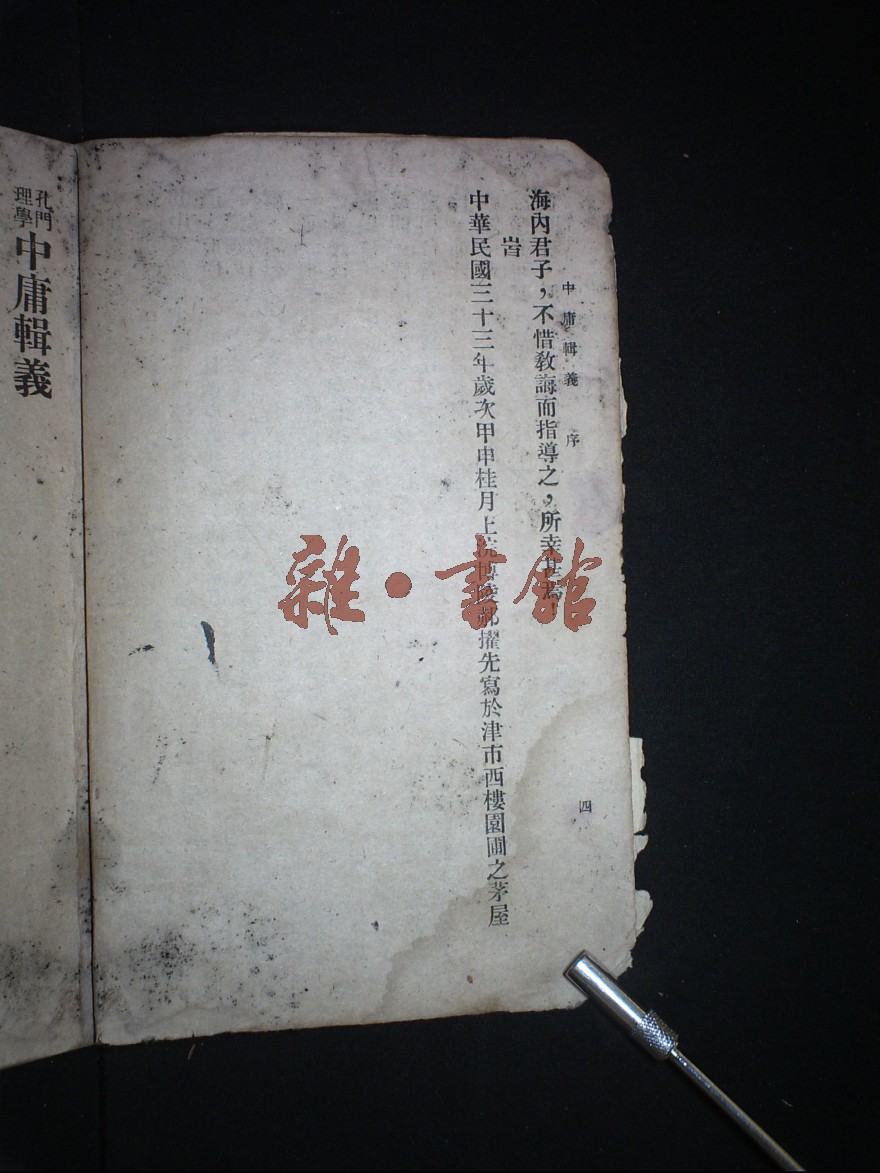 中庸輯義 序
四
海內君子，不惜敎誨而指導之，所幸甚焉！
旹
中華民國三十三年歲次甲申桂月上浣博陵郝擢先寫於津市西樓園圃之茅屋
孔門理學 中庸輯義
雜·書館